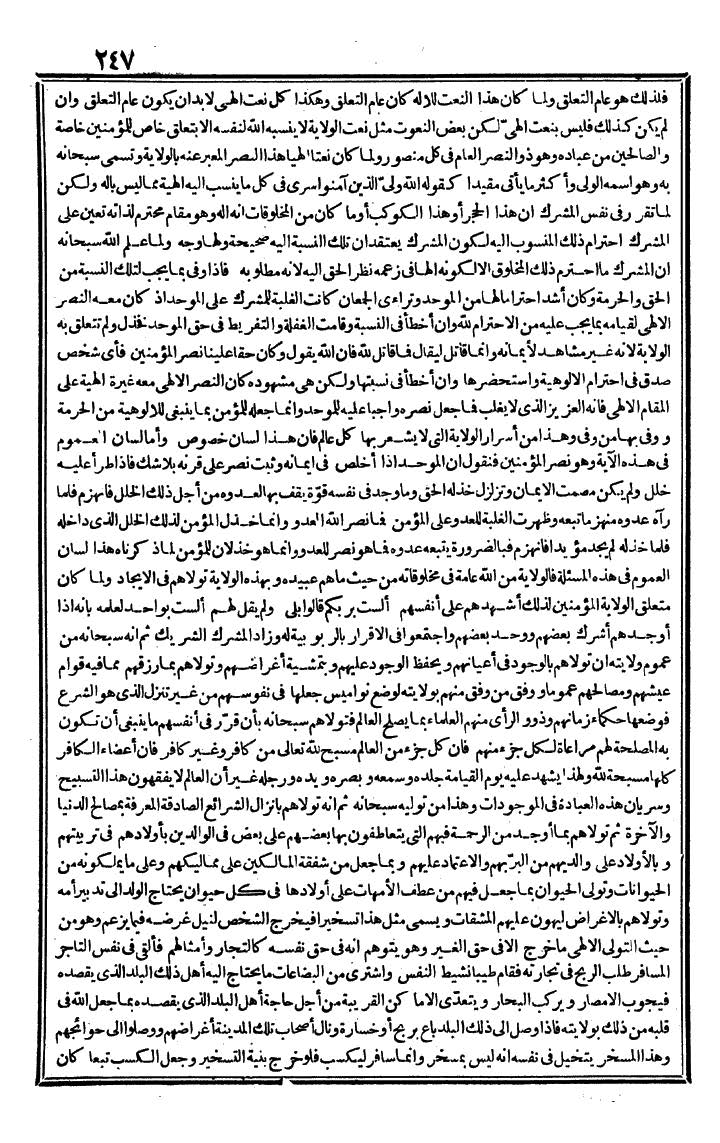 ٢٤٧
فلذلك هو عام التعلق ولما كان هذا النعت للاله كان عام التعلق وهكذا كل نعت الهى لابد ان يكون عام التعلق وان
لم يكن كذلك فليس بنعت الهى لكن بعض النعوت مثل نعت الولاية لا ينسبه الله لنفسه الا بتعلق خاص للمؤمنين خاصة
والصالحين من عباده وهو ذو النصر العام فى كل منصور ولما كان نعتا الهيا هذا النصر المعبر عنه بالولاية وتسمى سبحانه
به وهو اسمه الولى وأكثر ما يأتى مقيدا كقوله الله ولىّ الذين آمنوا سرى فى كل ما ينسب اليه الهية مما ليس باله ولكن
لما تقرر فى نفس المشرك ان هذا الحجر أو هذا الكوكب أو ما كان من المخلوقات انه اله وهو مقام محترم لذاته تعين على
المشرك احترام ذلك المنسوب اليه لكون المشرك يعتقد ان تلك النسبة اليه صحيحة ولها وجه ولما علم الله سبحانه
ان المشرك ما احترم ذلك المخلوق الا لكونه الها فى زعمه نظر الحق اليه لانه مطلوبه فاذا وفى بما يجب لتلك النسبة من
الحق والحرمة وكان أشد احتراما لها من الموحد وتراءى الجمعان كانت الغلبة للمشرك على الموحد اذ كان معه النصر
الالهى لقيامه بما يجب عليه من الاحترام لله وان أخطأ فى النسبة وقامت الغفلة والتفريط فى حق الموحد فخذل ولم تتعلق به
الولاية لانه غير مشاهد لأيمانه وانما قاتل ليقال فما قاتل لله فان الله يقول وكان حقا علينا نصر المؤمنين فأى شخص
صدق فى احترام الالوهية واستحضرها وان أخطأ فى نسبتها ولكن هى مشهوده كان النصر الالهى معه غيرة الهية على
المقام الالهى فانه العزيز الذى لا يغلب فما جعل نصره واجبا عليه للموحد وانما جعله للمؤمن بما ينبغى للالوهية من الحرمة
ووفى بها من وفى وهذا من أسرار الولاية التى لا يشعر بها كل عالم فان هذا لسان خصوص وأما لسان العموم
فى هذه الآية وهو نصر المؤمنين فنقول ان الموحد اذا أخلص فى ايمانه وثبت نصر على قرنه بلا شك فاذا طرأ عليه
خلل ولم يكن مصمت الايمان وتزلزل خذله الحق وما وجد فى نفسه قوّة يقف بها لعدوه من أجل ذلك الخلل فانهزم فلما
رآه عدوه منهزما تبعه وظهرت الغلبة للعدو على المؤمن فما نصر الله العدو وانما خذل المؤمن لذلك الخلل الذى داخله
فلما خذله لم يجد مؤيدا فانهزم فبالضرورة يتبعه عدوه فما هو نصر للعدو وانما هو خذلان للمؤمن لما ذكرناه هذا لسان
العموم فى هذه المسئلة فالولاية من الله عامة فى مخلوقاته من حيث ما هم عبيده وبهذه الولاية تولاهم فى الايجاد ولما كان
متعلق الولاية المؤمنين لذلك أشهدهم على أنفسهم ألست بربكم قالوا بلى ولم يقل لهم ألست بواحد لعلمه بانه اذا
أوجدهم أشرك بعضهم ووحد بعضهم واجتمعوا فى الاقرار بالربوبية له وزاد المشرك الشريك ثم انه سبحانه من
عموم ولايته ان تولاهم بالوجود فى أعيانهم وبحفظ الوجود عليهم وبتمشية أغراضهم وتولاهم بما رزقهم مما فيه قوام
عيشهم ومصالحهم عموما ووفق من وفق منهم بولايته لوضع نواميس جعلها فى نفوسهم من غير تنزل الذى هو الشرع
فوضعها حكماء زمانهم وذوو الرأى منهم العلماء بما يصلح العالم فتولاهم سبحانه بأن قرّر فى أنفسهم ما ينبغى أن تكون
به المصلحة لهم مراعاة لكل جزء منهم فان كل جزء من العالم مسبح لله تعالى من كافر وغير كافر فان أعضاء الكافر
كلها مسبحة لله ولهذا يشهد عليه يوم القيامة جلده وسمعه وبصره ويده ورجله غير أن العالم لا يفقهون هذا التسبيح
وسريان هذه العبادة فى الموجودات وهذا من توليه سبحانه ثم انه تولاهم بانزال الشرائع الصادقة المعرفة بمصالح الدنيا
والآخرة ثم تولاهم بما أوجد من الرحمة فيهم التى يتعاطفون بها بعضهم على بعض فى الوالدين بأولادهم فى تربيتهم
وبالأولاد على والديهم من البرّ بهم والاعتماد عليهم وبما جعل من شفقة المالكين على مماليكهم وعلى ما يملكونه من
الحيوانات وتولى الحيوان بما جعل فيهم من عطف الأمهات على أولادها فى كل حيوان يحتاج الولد الى تدبير أمه
وتولاهم بالاغراض ليهون عليهم المشقات ويسمى مثل هذا تسخيرا فيخرج الشخص لنيل غرضه فيما يزعم وهو من
حيث التولى الالهى ما خرج الا فى حق الغير وهو يتوهم انه فى حق نفسه كالتجار وأمثالهم فألقى فى نفس التاجر
المسافر طلب الربح فى تجارته فقام طيبا نشيط النفس واشترى من البضاعات ما يحتاج اليه أهل ذلك البلد الذى يقصده
فيجوب الامصار ويركب البحار ويتعدّى الاماكن القريبة من أجل حاجة أهل البلد الذى يقصده بما جعل الله فى
قلبه من ذلك بولايته فاذا وصل الى ذلك البلد باع بربح أو خسارة ونال أصحاب تلك المدينة أغراضهم ووصلوا الى حوائجهم
وهذا المسخر يتخيل فى نفسه انه ليس بمسخر وانما سافر ليكسب فلو خرج بنية التسخير وجعل الكسب تبعا كان